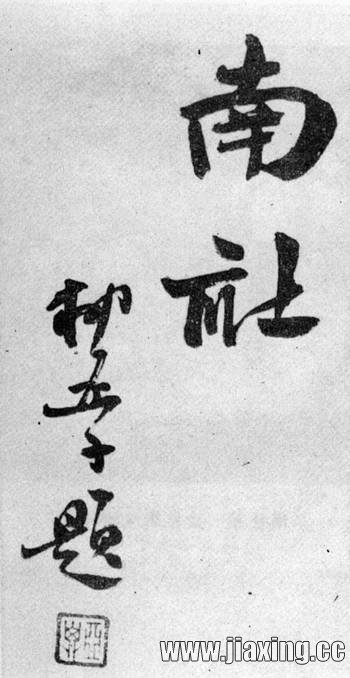 南社
柳亞子題
www.jiaxing.cc